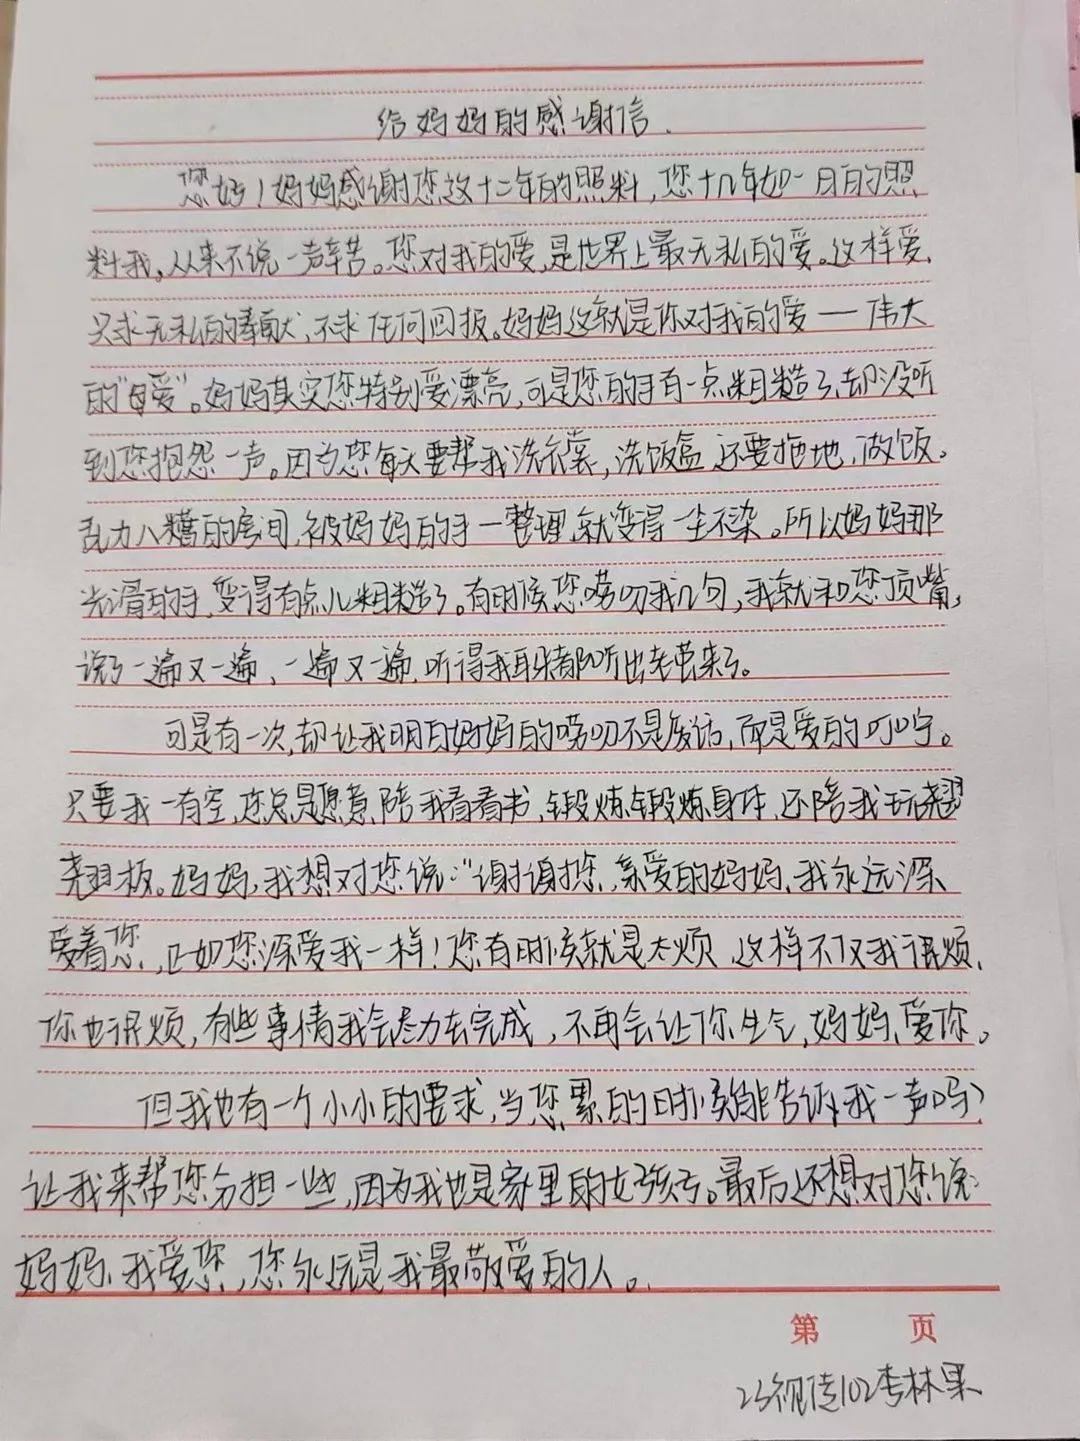 给妈妈的感谢信.
您好！妈妈感谢您这十二年的照料，您十几年如一日的照
料我，从来不说一声辛苦。您对我的爱，是世界上最无私的爱。这样爱，
只求无私的奉献，不求任何回报。妈妈这就是你对我的爱——伟大
的“母爱”。妈妈其实您特别爱漂亮，可是您的手有一点粗糙了，却没听
到您抱怨一声。因为您每天要帮我洗衣裳，洗饭盒，还要拖地，做饭。
乱力八糟的房间，被妈妈的手一整理，就变得一尘不染。所以妈妈那
光滑的手，变得有点儿粗糙了。有时候您唠叨我几句，我就和您顶嘴，
说了一遍又一遍、一遍又一遍，听得我耳朵都听出老茧来了。
可是有一次，却让我明白妈妈的唠叨不是废话，而是爱的叮咛。
只要我一有空，您总是愿意陪我看看书，锻炼锻炼身体，还陪我玩翘
翘板。妈妈，我想对您说：“谢谢您，亲爱的妈妈、我永远深
爱着您，正如您深爱我一样！您有时候就是太烦，这样不仅我很烦，
你也很烦，有些事情我会尽力去完成，不再会让你生气，妈妈、爱你。
但我也有一个小小的要求，当您累的时候能告诉我一声吗？
让我来帮您分担一些，因为我也是家里的女孩子。最后还想对您说：
妈妈、我爱您，您永远是我最敬爱的人。
第 页
23视传102李林果